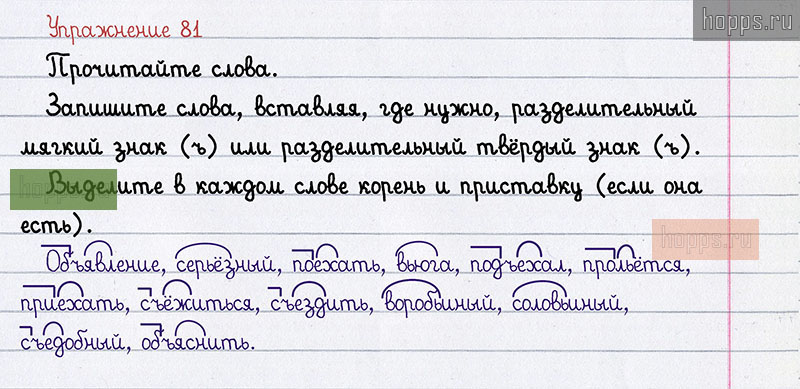 hopps.ru
Упражнение 81
Прочитайте слова.
Запишите слова, вставляя, где нужно, разделительный
мягкий знак (ъ) или разделительный твёрдый знак (ъ).
Выделите в каждом слове корень и приставку (если она
есть).
hopps.ru
Объявление, серьёзный, поехать, вьюга, подъехал, прольётся,
приехать, съёжиться, съездить, воробьиный, соловьиный,
съедобный, объяснить.